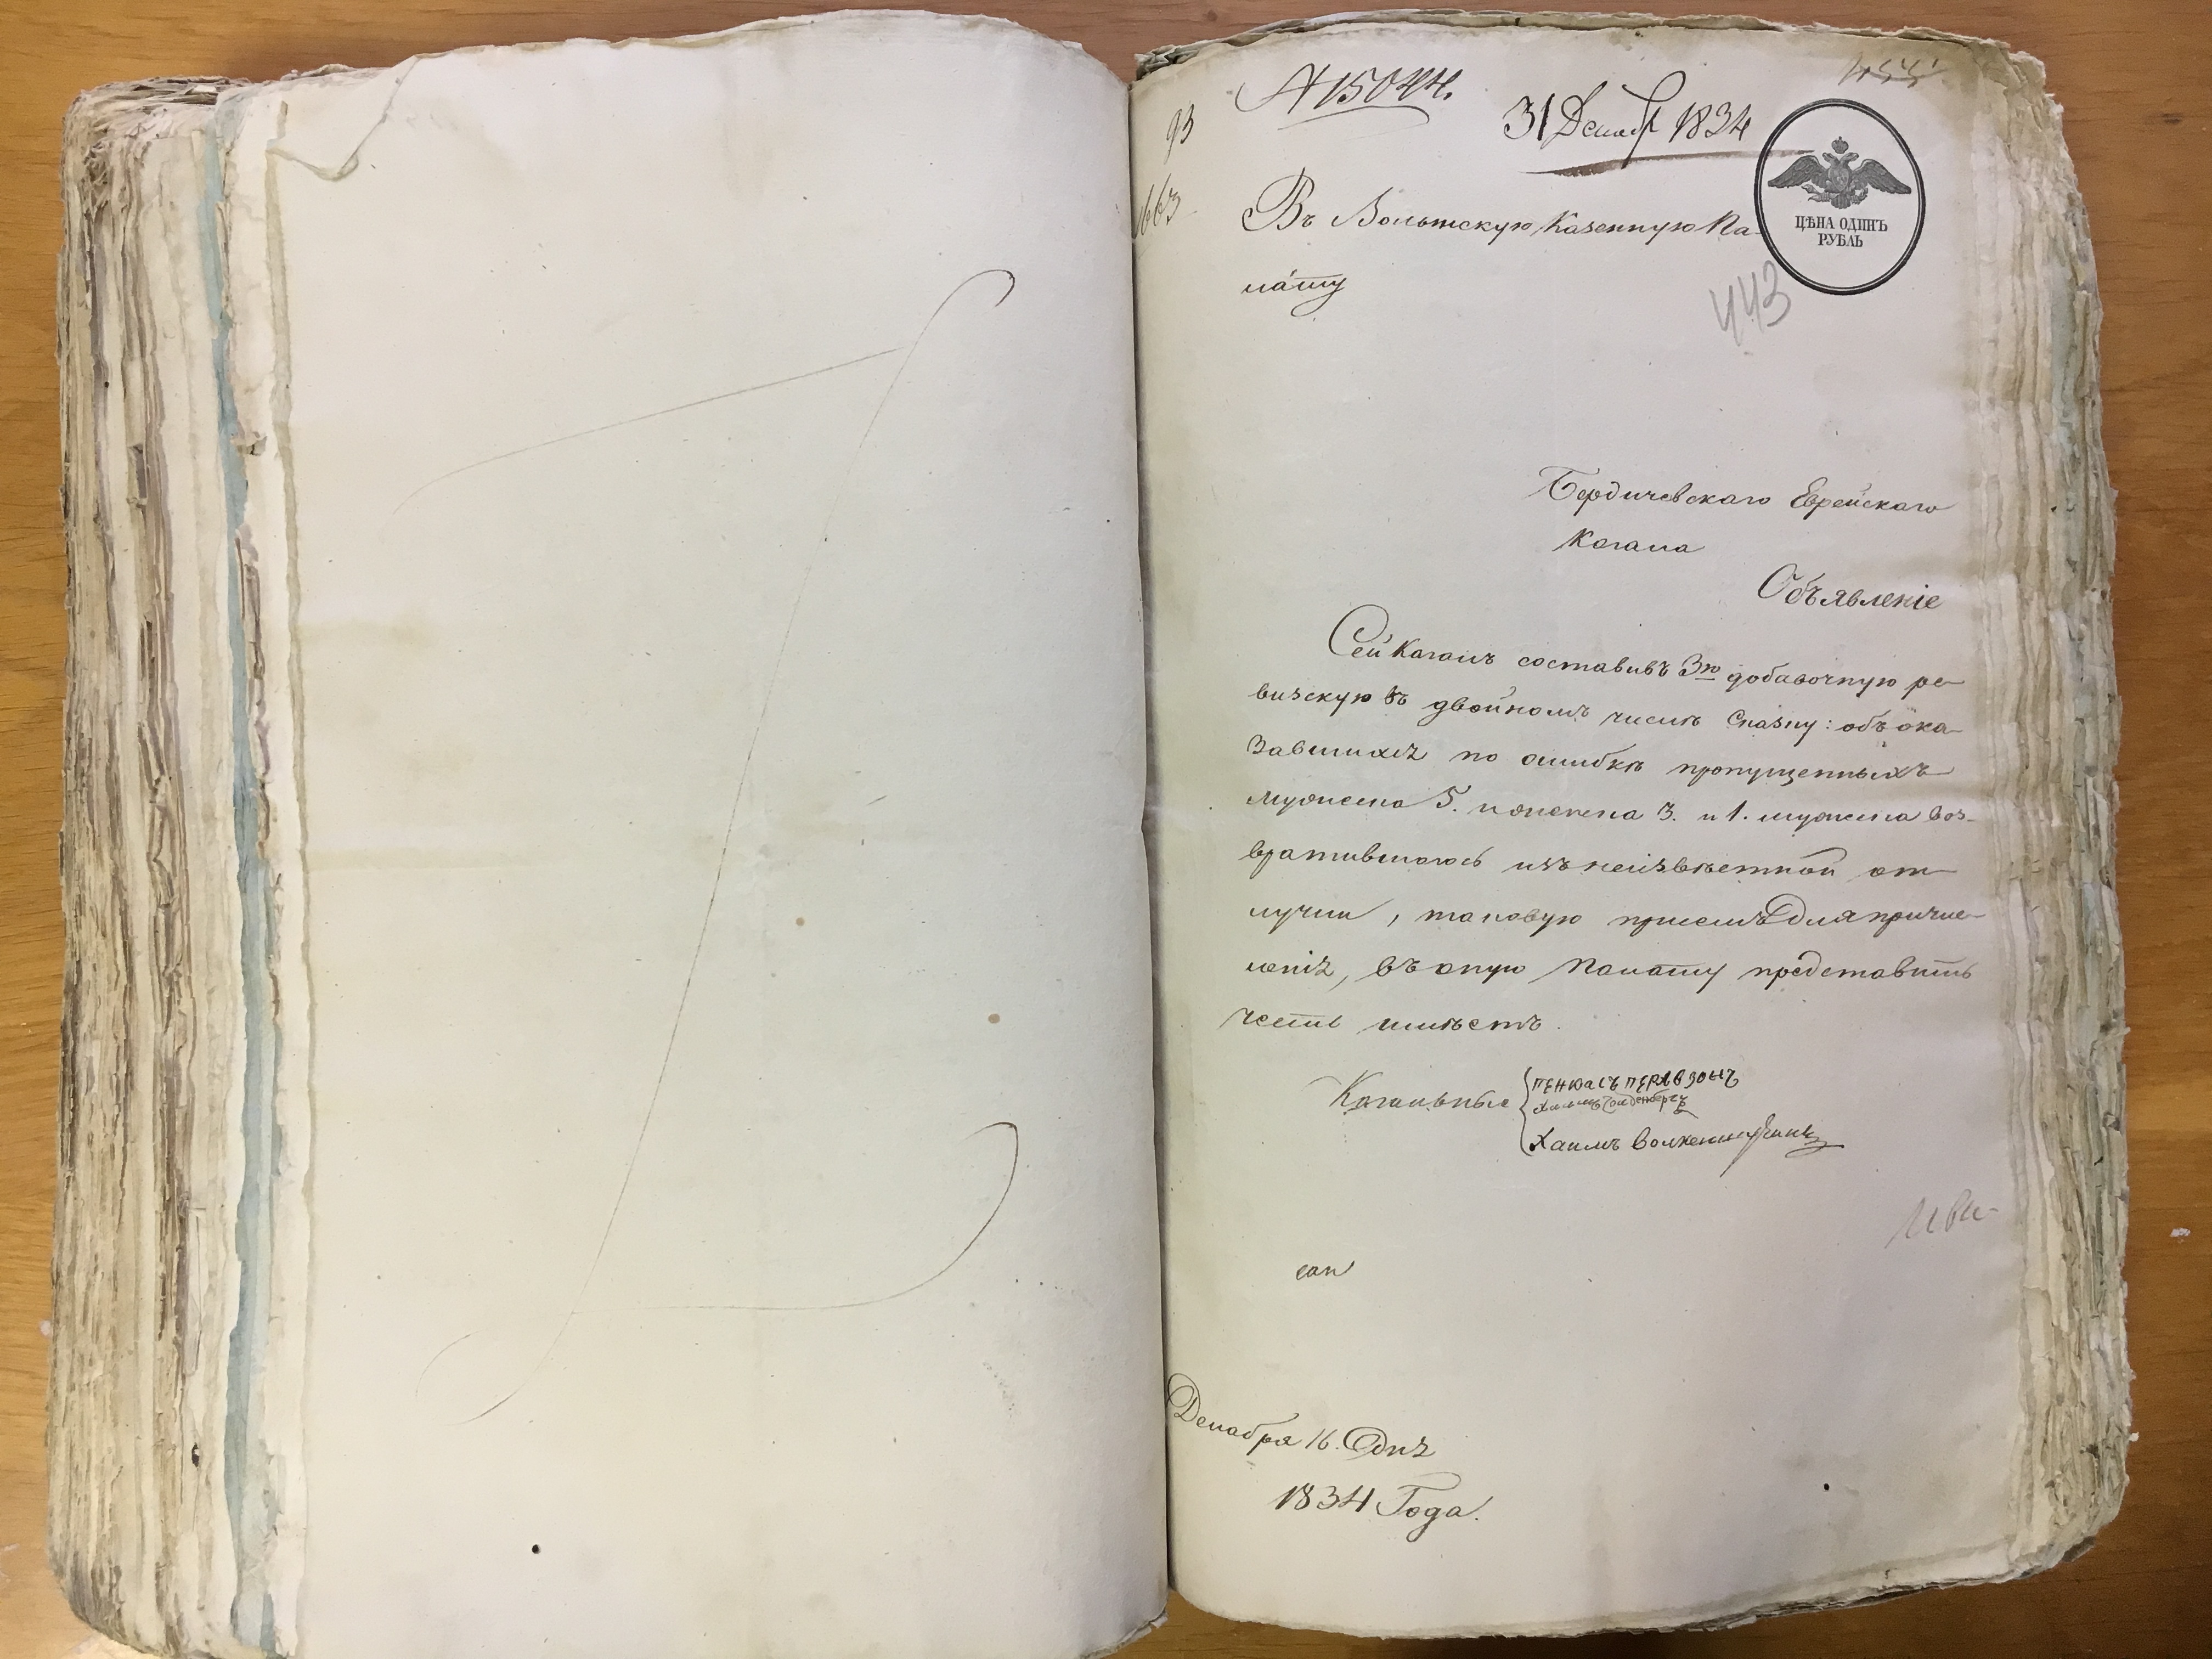 № 15044.
455
93
31 Декабр 1834
663
ЦѢНА ОДИНЪ
РУБЛЬ
Въ Волынскую Казенную Па-
лату
443
Бердичевскаго Еврейскаго
Кагала
Объявленіе
Сей Кагалъ составивъ 3ю добавочную ре-
визскую въ двойномъ числѣ Сказку: объ ока-
завшихся по ошибкѣ пропущенныхъ
мужеска 5. и женска 3. и 1. мужеска воз-
вратившагось изъ неизвѣстной от-
лучки, таковую присемъ для причис-
ленія, въ оную Палату представить
честь имѣетъ.
Кагальные
ПЕНЮАСЪ ПЕРЛЗОНЪ
Хаимъ Голденбергъ
Хаимъ Волкенштеинъ
Декабря 16. Дня
1834 Года.